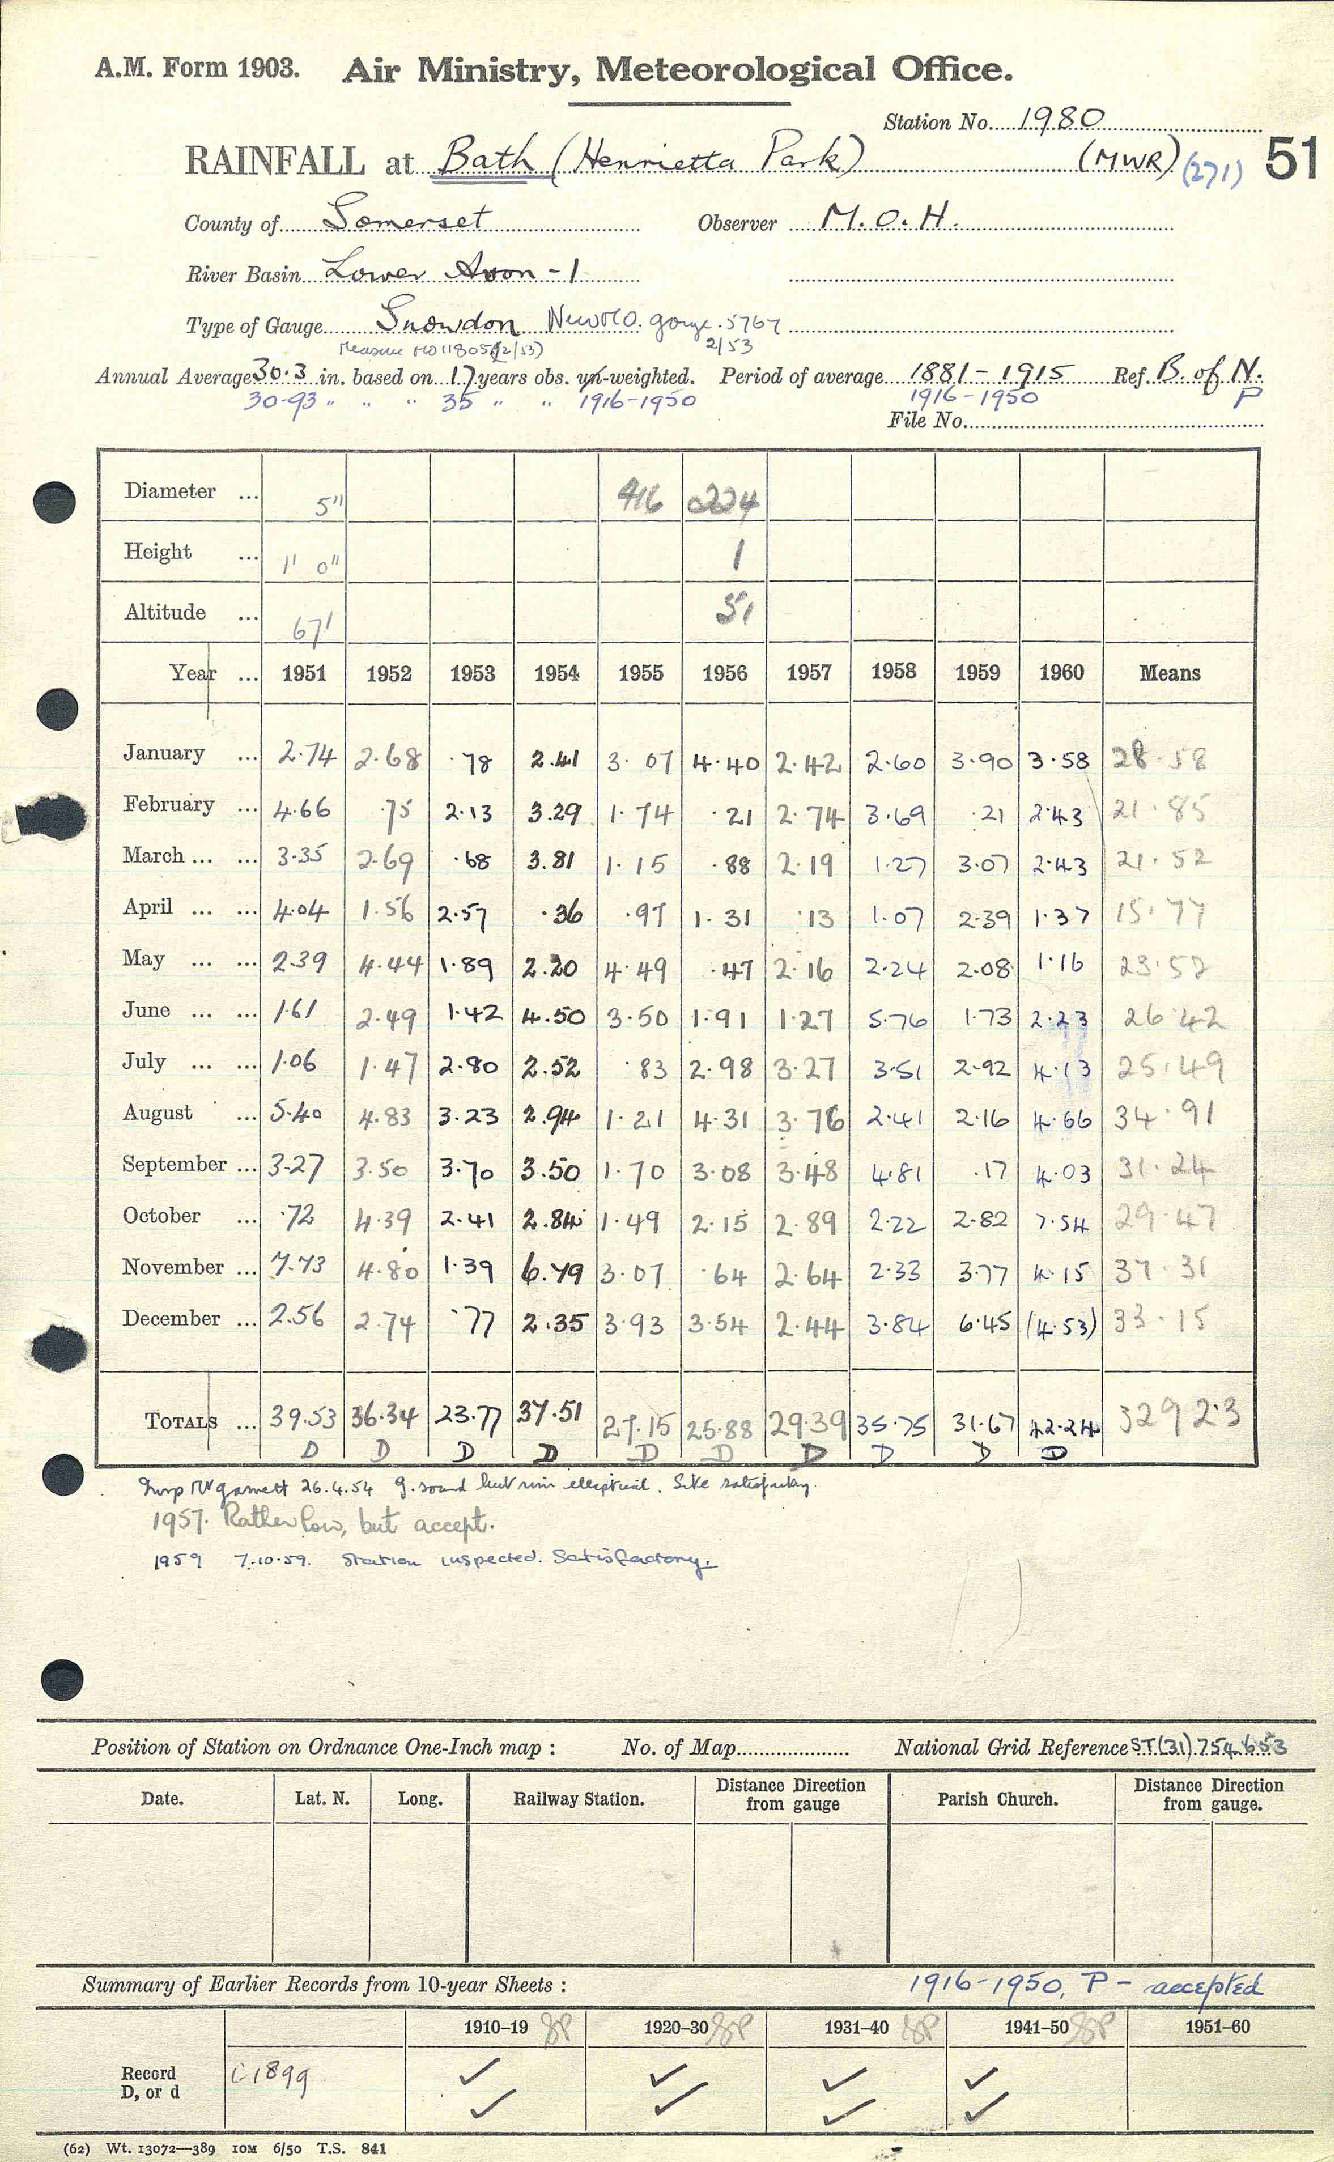 A.M. Form 1903. Air Ministry, Meteorological Office.
Station No. 1980
RAINFALL at Bath (Henrietta Park) (MWR) (271) 51
County of Somerset Observer M.O.H.
River Basin Lower Avon - 1
Type of Gauge Snowdon New M.O. gauge. 5767
2/53
Annual Average 30.3 in. based on 17 years obs. un-weighted. Period of average 1881 - 1915 Ref. B. of N.
30.93 " " " 35 " " 1916-1950 1916-1950 P
File No.
Diameter ... 5" 416 0224
Height ... 1' 0" 1
Altitude ... 67' 51
Year ... 1951 1952 1953 1954 1955 1956 1957 1958 1959 1960 Means
January ... 2.74 2.68 .78 2.41 3.07 4.40 2.42 2.60 3.90 3.58 28.58
February ... 4.66 .75 2.13 3.29 1.74 .21 2.74 3.69 .21 2.43 21.85
March ... ... 3.35 2.69 .68 3.81 1.15 .88 2.19 1.27 3.07 2.43 21.52
April ... ... 4.04 1.56 2.57 .36 .97 1.31 .13 1.07 2.39 1.37 15.77
May ... ... 2.39 4.44 1.89 2.20 4.49 .47 2.16 2.24 2.08 1.16 23.52
June ... ... 1.61 2.49 1.42 4.50 3.50 1.91 1.27 5.76 1.73 2.23 26.42
July ... ... 1.06 1.47 2.80 2.52 .83 2.98 3.27 3.51 2.92 4.13 25.49
August ... 5.40 4.83 3.23 2.94 1.21 4.31 3.76 2.41 2.16 4.66 34.91
September ... 3.27 3.50 3.70 3.50 1.70 3.08 3.48 4.81 .17 4.03 31.24
October ... .72 4.39 2.41 2.84 1.49 2.15 2.89 2.22 2.82 7.54 29.47
November ... 7.73 4.80 1.39 6.79 3.07 .64 2.64 2.33 3.77 4.15 37.31
December ... 2.56 2.74 .77 2.35 3.93 3.54 2.44 3.84 6.45 (4.53) 33.15
TOTALS ... 39.53 36.34 23.77 37.51 27.15 25.88 29.39 35.75 31.67 42.24 329.23
D D D D D D D D D D
26.4.54 g. sound but rim elliptical. Site satisfactory.
1957. Rather low, but accept.
1959 7.10.59. Station inspected. Satisfactory.
Position of Station on Ordnance One-Inch map : No. of Map National Grid Reference ST(31)754653
Date. Lat. N. Long. Railway Station. Distance Direction from gauge Parish Church. Distance Direction from gauge.
Summary of Earlier Records from 10-year Sheets : 1916-1950, P - accepted
1910–19 1920–30 1931–40 1941–50 1951–60
Record D, or d C1899 ✓ ✓ ✓ ✓
✓ ✓ ✓ ✓
(62) Wt. 13072—389 10M 6/50 T.S. 841